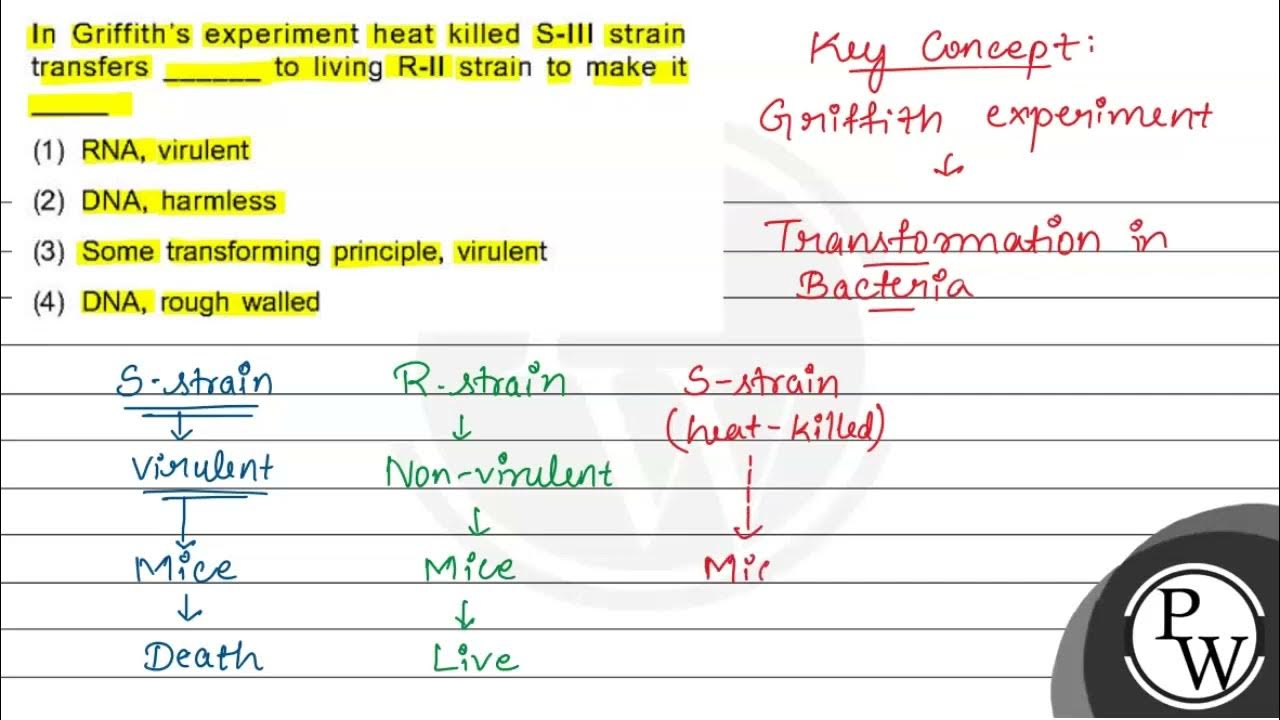 In Griffith's experiment heat killed S-III strain
transfers ______ to living R-II strain to make it
______
(1) RNA, virulent
(2) DNA, harmless
(3) Some transforming principle, virulent
(4) DNA, rough walled
Key Concept:
Griffith experiment
↓
Transformation in
Bacteria
S-strain R-strain S-strain
(heat-killed)
↓ ↓
Virulent Non-virulent
↓ ↓ ↓
Mice Mice Mic
↓ ↓
Death Live
P
W